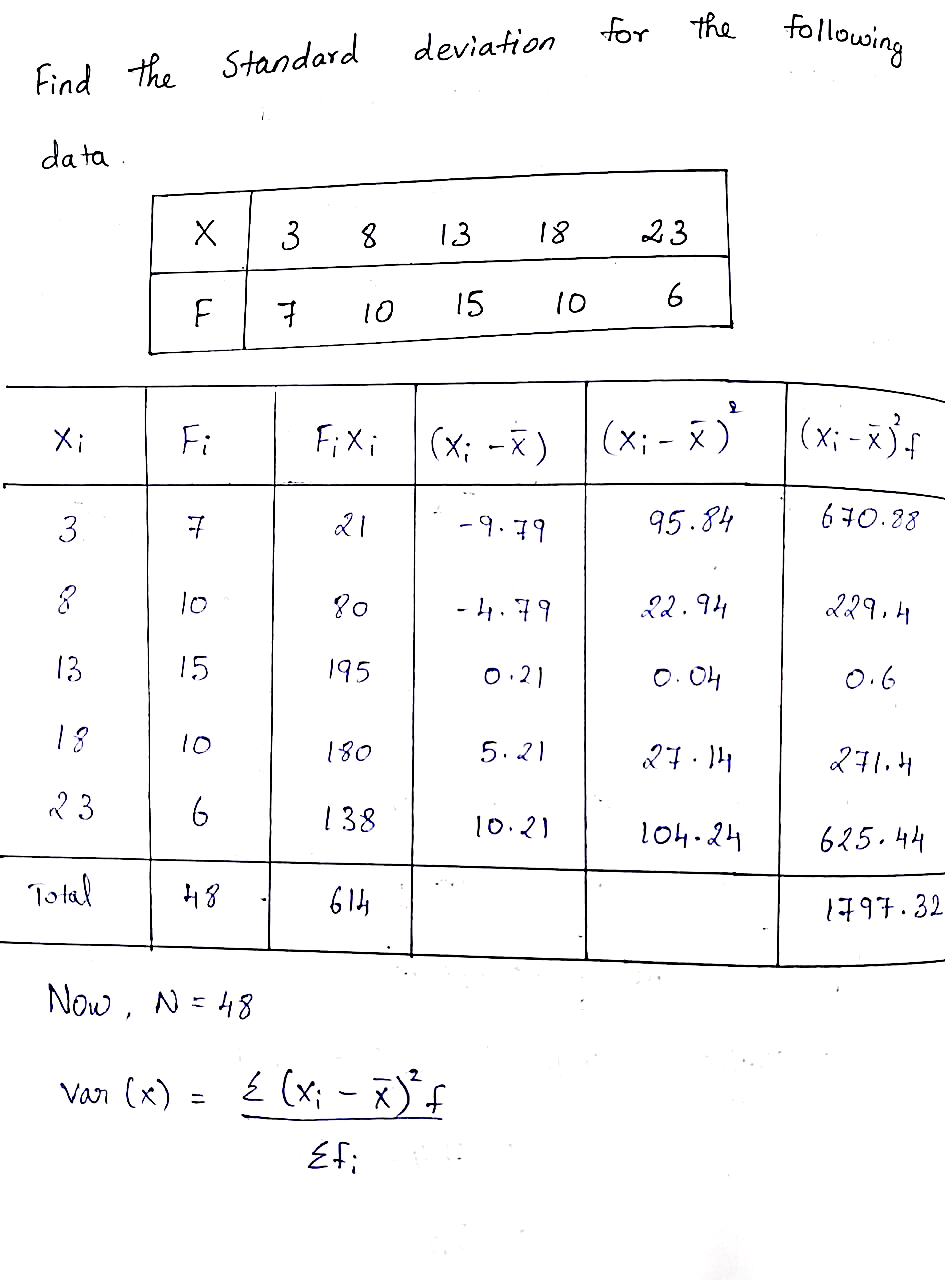 Find the Standard deviation for the following
data.
X 3 8 13 18 23
F 7 10 15 10 6
Xi Fi FiXi (Xi - x̄) (Xi - x̄)² (Xi - x̄)²f
3 7 21 -9.79 95.84 670.88
8 10 80 -4.79 22.94 229.4
13 15 195 0.21 0.04 0.6
18 10 180 5.21 27.14 271.4
23 6 138 10.21 104.24 625.44
Total 48 614 1797.32
Now, N = 48
Var (x) = Σ (Xi - x̄)² f
Σfi